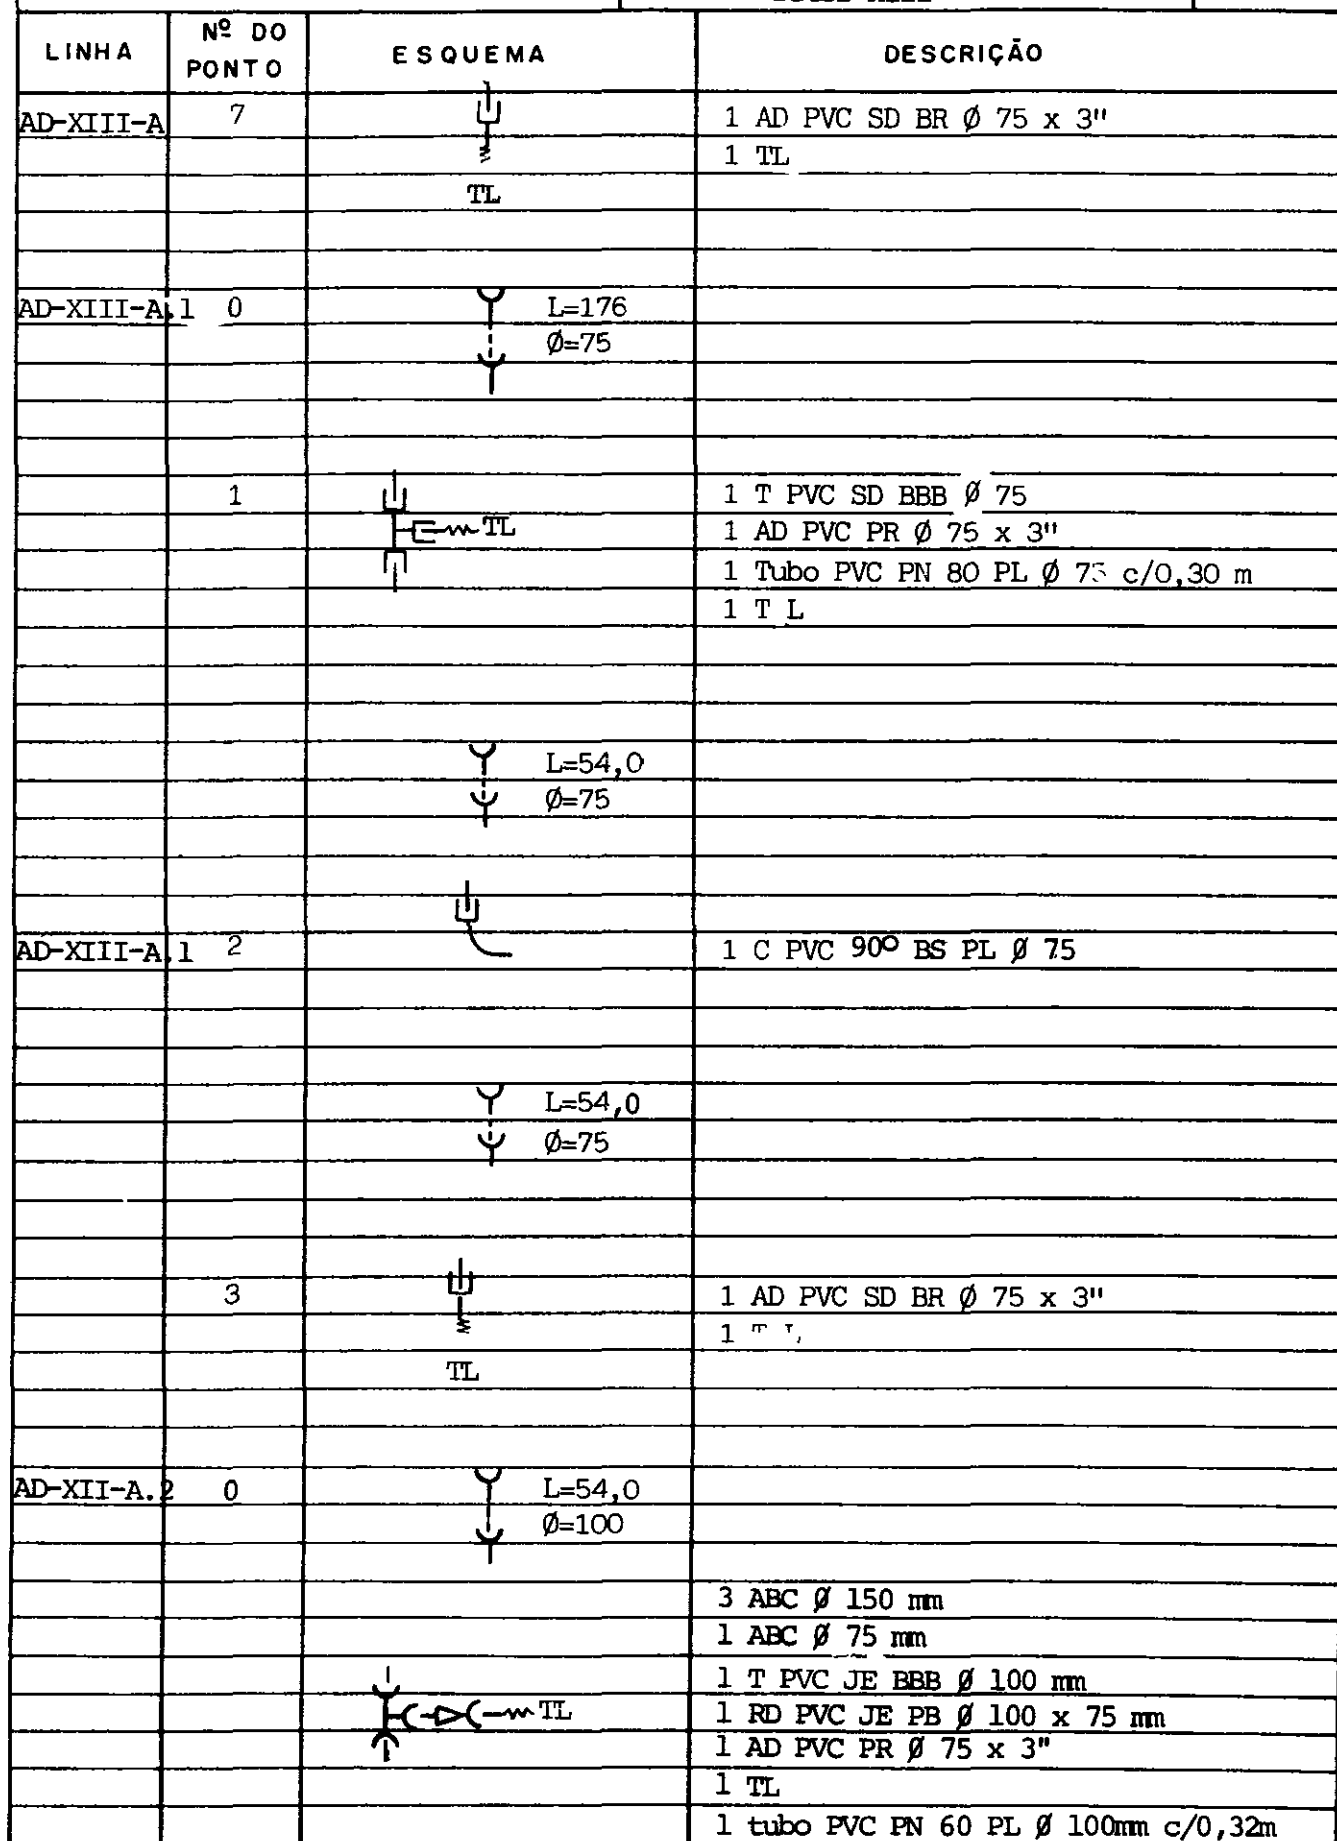 LINHA Nº DO PONTO ESQUEMA DESCRIÇÃO
AD-XIII-A 7 1 AD PVC SD BR Ø 75 x 3"
1 TL
TL
AD-XIII-A.1 0 L=176
Ø=75
1 1 T PVC SD BBB Ø 75
TL 1 AD PVC PR Ø 75 x 3"
1 Tubo PVC PN 80 PL Ø c/0,30 m
1 T L
L=54,0
Ø=75
AD-XIII-A.1 2 1 C PVC 90º BS PL Ø 75
L=54,0
Ø=75
3 1 AD PVC SD BR Ø 75 x 3"
1
TL
AD-XII-A.2 0 L=54,0
Ø=100
3 ABC Ø 150 mm
1 ABC Ø 75 mm
1 T PVC JE BBB Ø 100 mm
TL 1 RD PVC JE PB Ø 100 x 75 mm
1 AD PVC PR Ø 75 x 3"
1 TL
1 tubo PVC PN 60 PL Ø 100mm c/0,32m